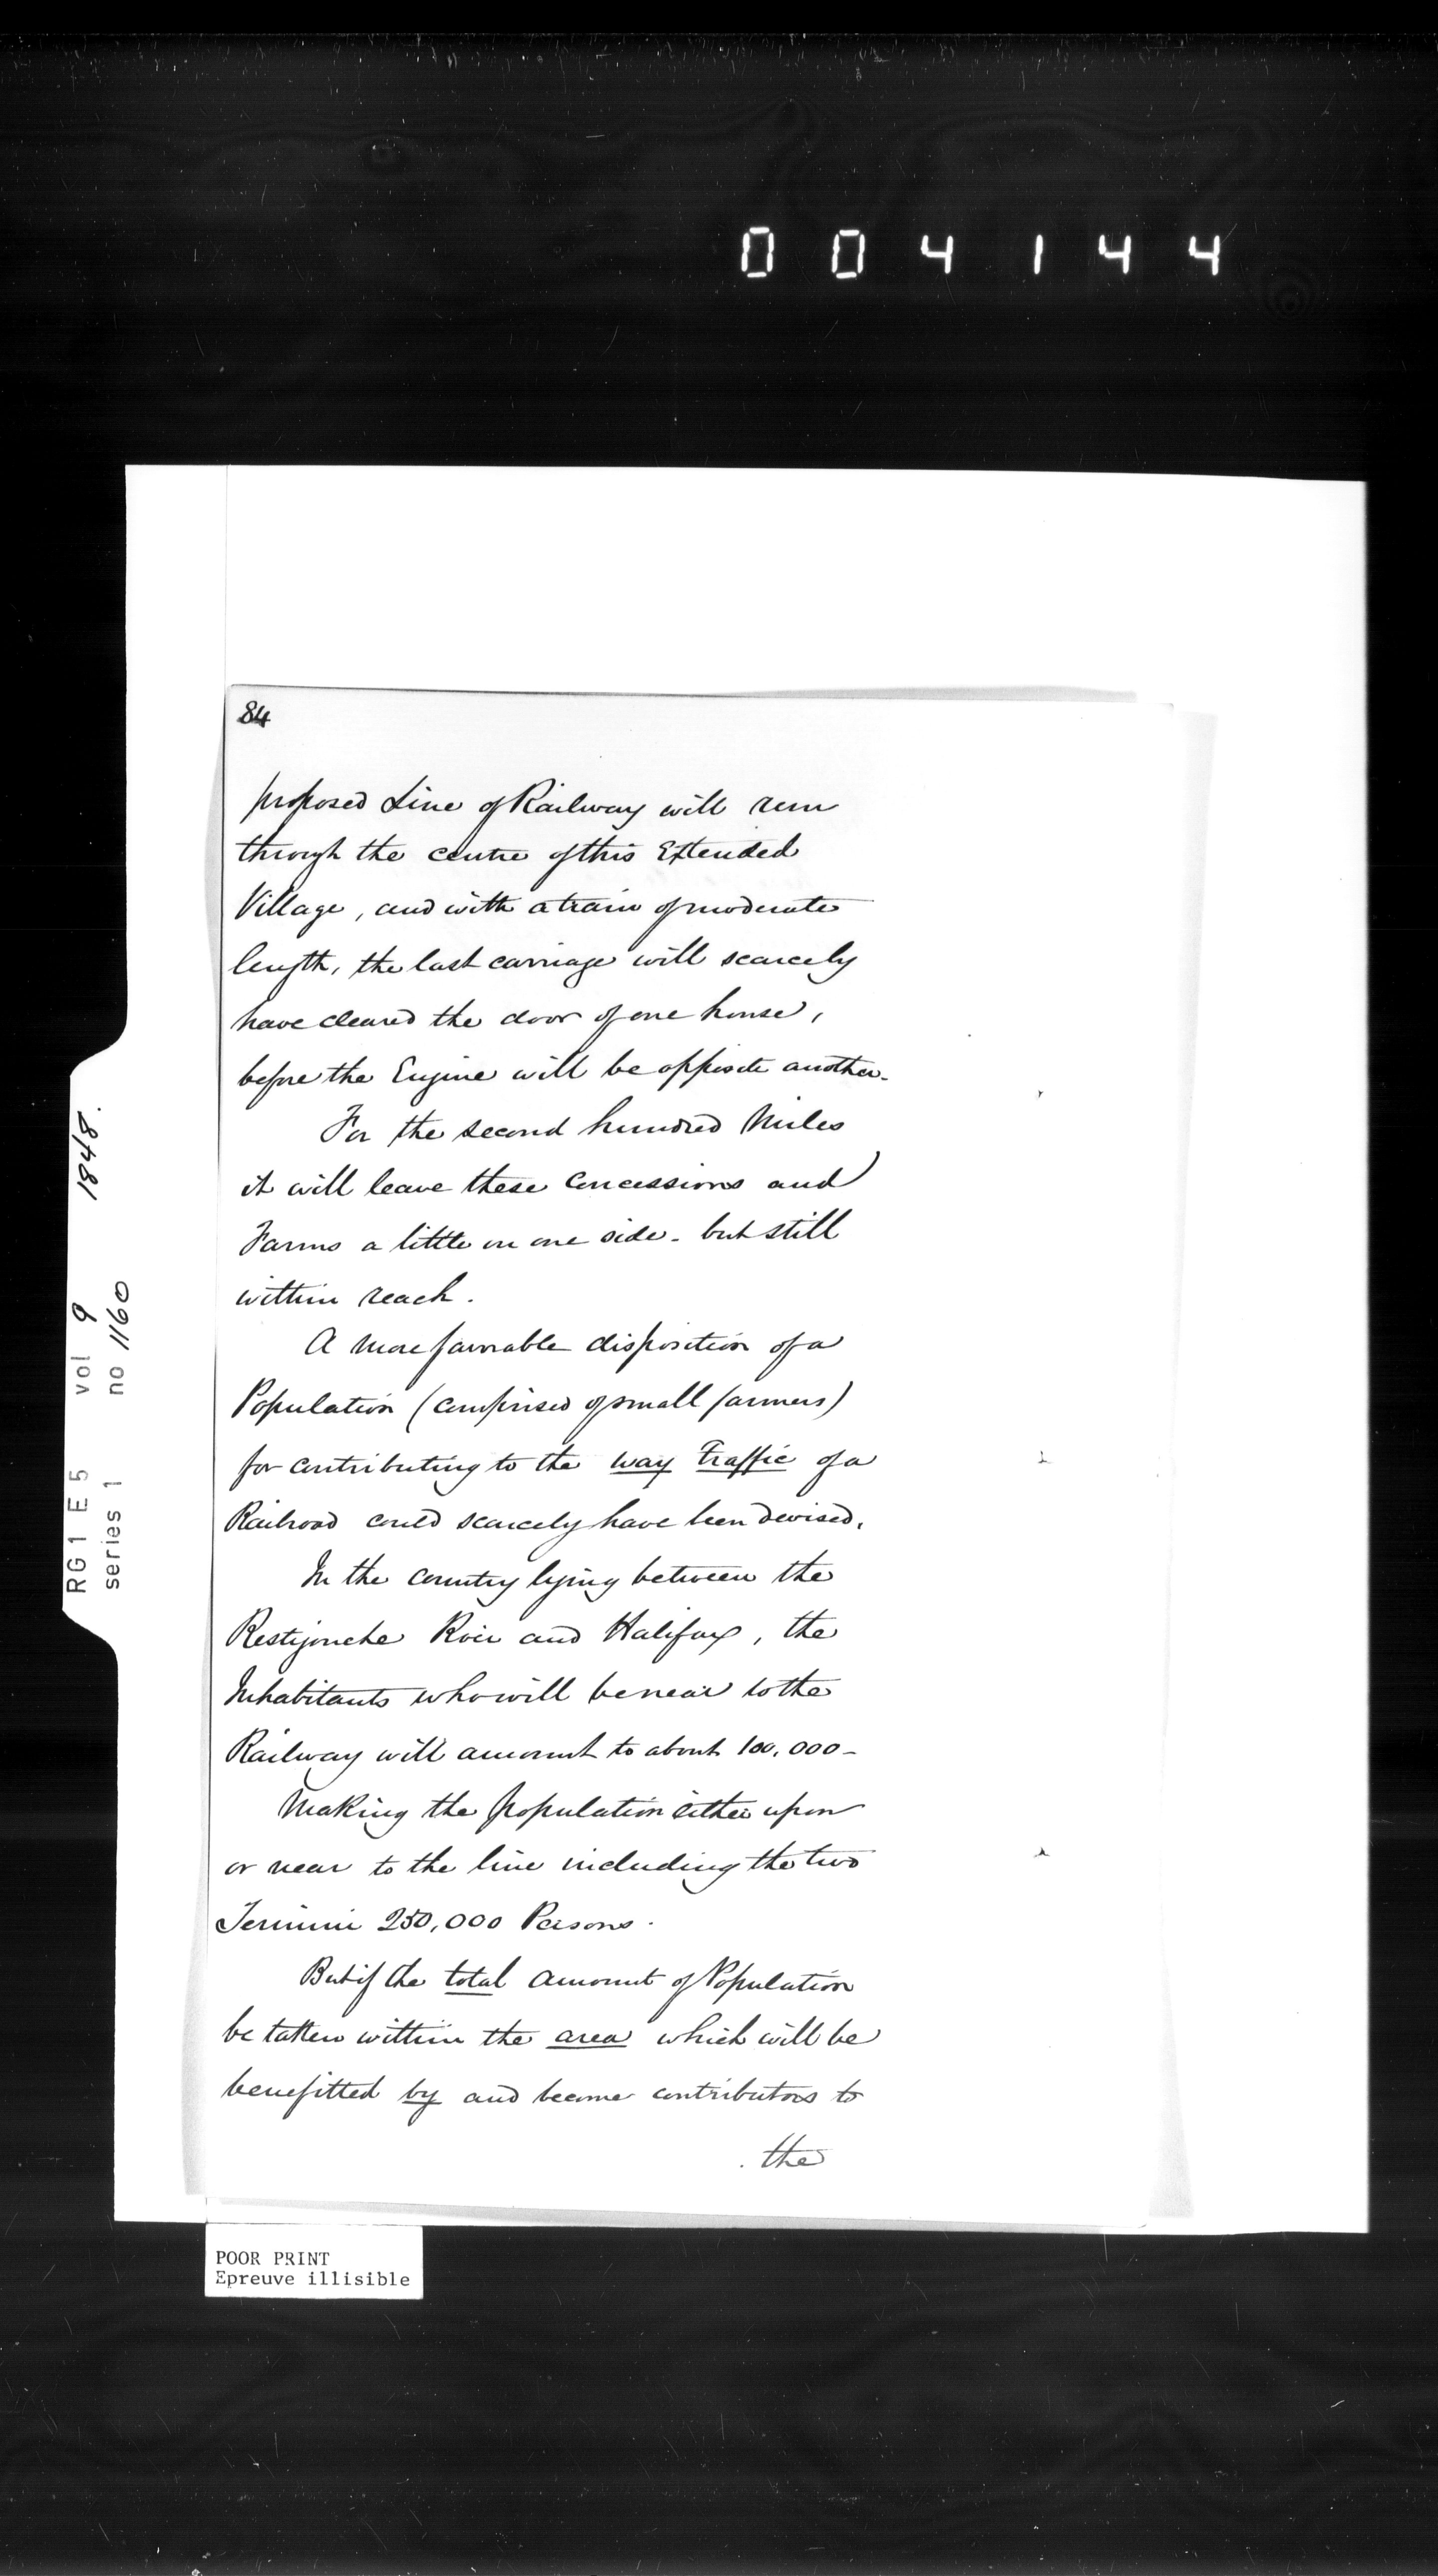 004144
84
proposed Line of Railway will run
through the centre of this Extended
Village, and with a train of moderate
length, the last carriage will scarcely
have cleared the door of one house,
before the Engine will be opposite another.
For the second hundred Miles
it will leave these Concessions and
Farms a little on one side - but still
within reach.
A more favorable disposition of a
Population (comprised of small farmers)
for contributing to the way traffic of a
Railroad could scarcely have been devised.
In the country lying between the
Restigouche River and Halifax, the
Inhabitants who will be near to the
Railway will amount to about 100,000 -
Making the population either upon
or near to the line including the two
Termini 250,000 Persons.
But if the total amount of Population
be taken within the area which will be
benefitted by and become contributors to
the
RG1 E5 vol 9 1848.
series 1 no 1160
POOR PRINT
Epreuve illisible